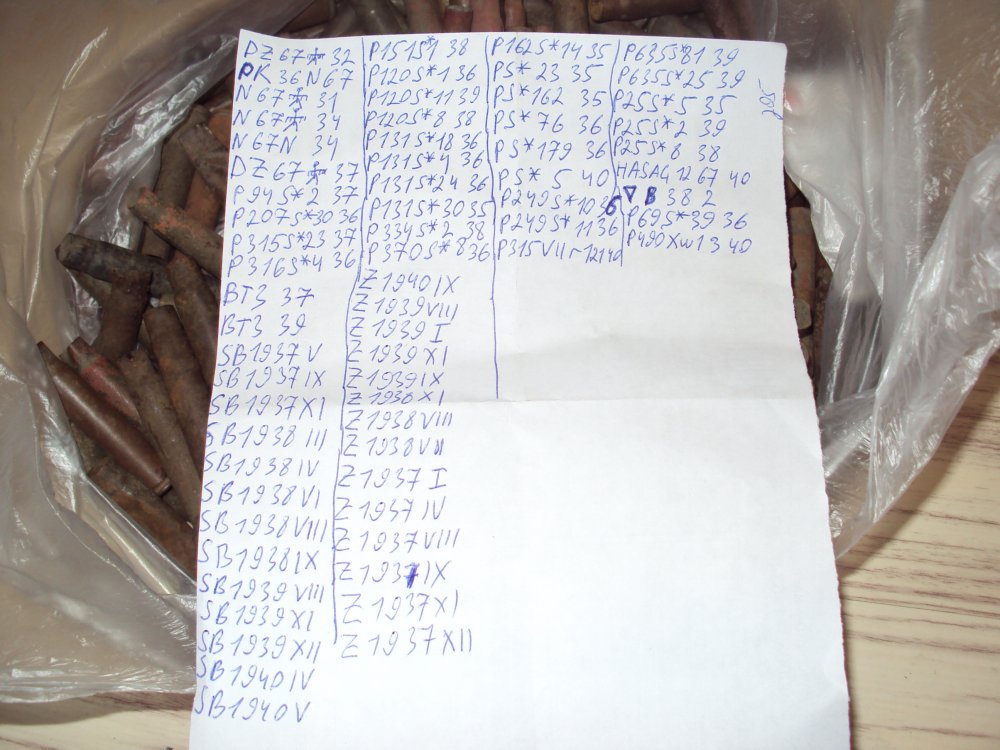 DZ 67 * 32
PK 36 N 67
N 67 * 31
N 67 * 34
N67N 34
DZ 67 * 37
P94S*2 37
P207S*30 36
P315S*23 37
P316S*4 36
BT3 37
BT3 39
SB1937 V
SB1937 IX
SB1937 XI
SB1938 III
SB1938 IV
SB1938 VI
SB1938 VIII
SB1938 IX
SB1939 VIII
SB1939 XI
SB1939 XII
SB1940 IV
SB1940 V
P151S*1 38
P120S*1 36
P120S*11 39
P120S*8 38
P131S*18 36
P131S*4 36
P131S*24 36
P131S*30 35
P334S*2 38
P370S*8 36
Z 1940 IX
Z 1939 VIII
Z 1939 I
Z 1939 XI
Z 1939 IX
Z 1938 XI
Z 1938 VIII
Z 1938 VII
Z 1937 I
Z 1937 IV
Z 1937 VIII
Z 1937 IX
Z 1937 XI
Z 1937 XII
P162S*14 35
PS* 23 35
PS*162 35
PS* 76 36
PS*179 36
PS* 5 40
P249S*10 36
P249S*11 36
P315 VII r 121 40
P635S*81 39
P635S*25 39
P25S*5 35
P25S*2 39
P25S*8 38
HASAG 12 67 40
∇ B 38 2
P69S*39 36
P490 Xw1 3 40